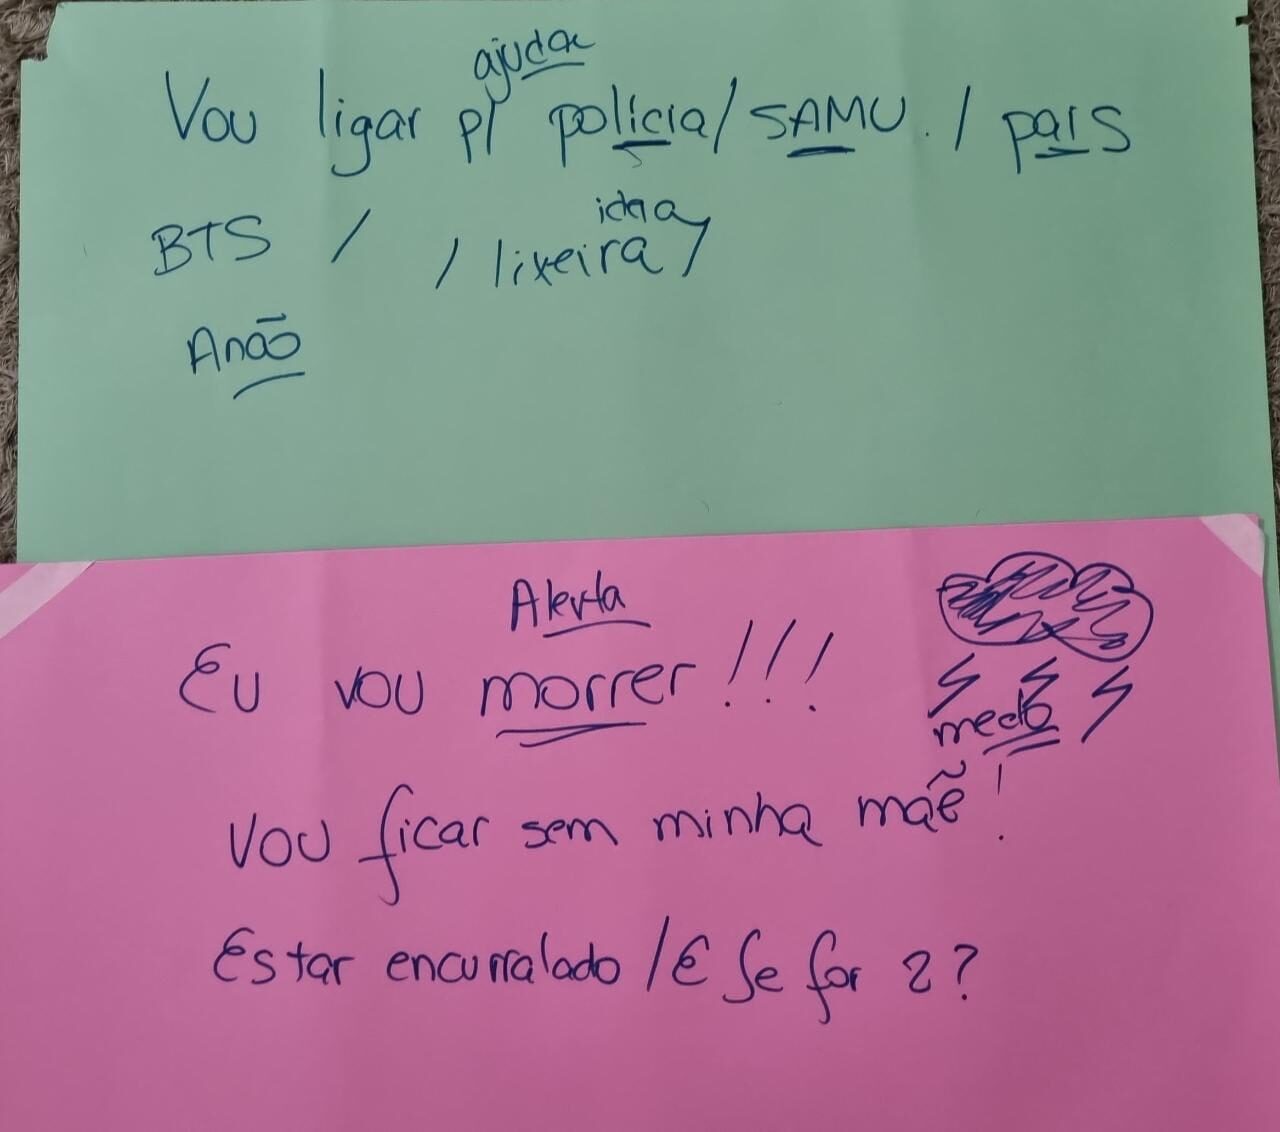 ajudar
Vou ligar p/ polícia / SAMU. / pais
ideia
BTS / / lixeira /
Anão
Alerta
Eu vou morrer !!!
medo
Vou ficar sem minha mãe!
Estar encurralado / E se for 2?